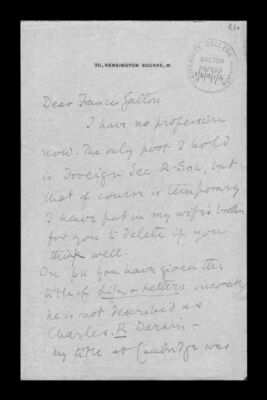 30, KENSINGTON SQUARE, W.
UNIVERSITY COLLEGE LONDON
GALTON
PAPERS
Dear Francis Galton
I have no profession
now. The only post I hold
is Foreign Sec R. Soc, but
that of course is temporary
I have put in my wife's
for you to delete if you
think well.
On p you have given the
title of Life & Letters incorrectly
he is not described as
Charles. R Darwin —
My title at Cambridge was